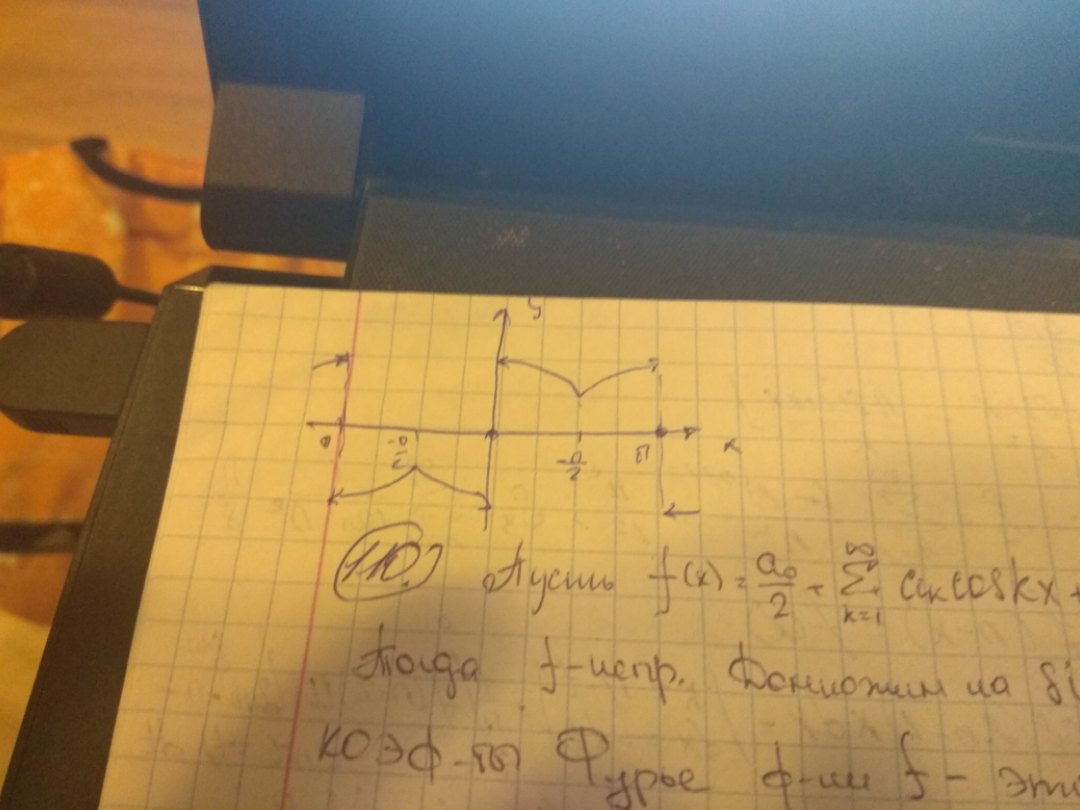 y
π/2 π x
110. Пусть f(x) = a₀/2 + ∑ₖ₌₁^∞ aₖ cos kx +
Тогда f-непр. Домножим на si
коэф-ты Фурье ф-ии f - эти